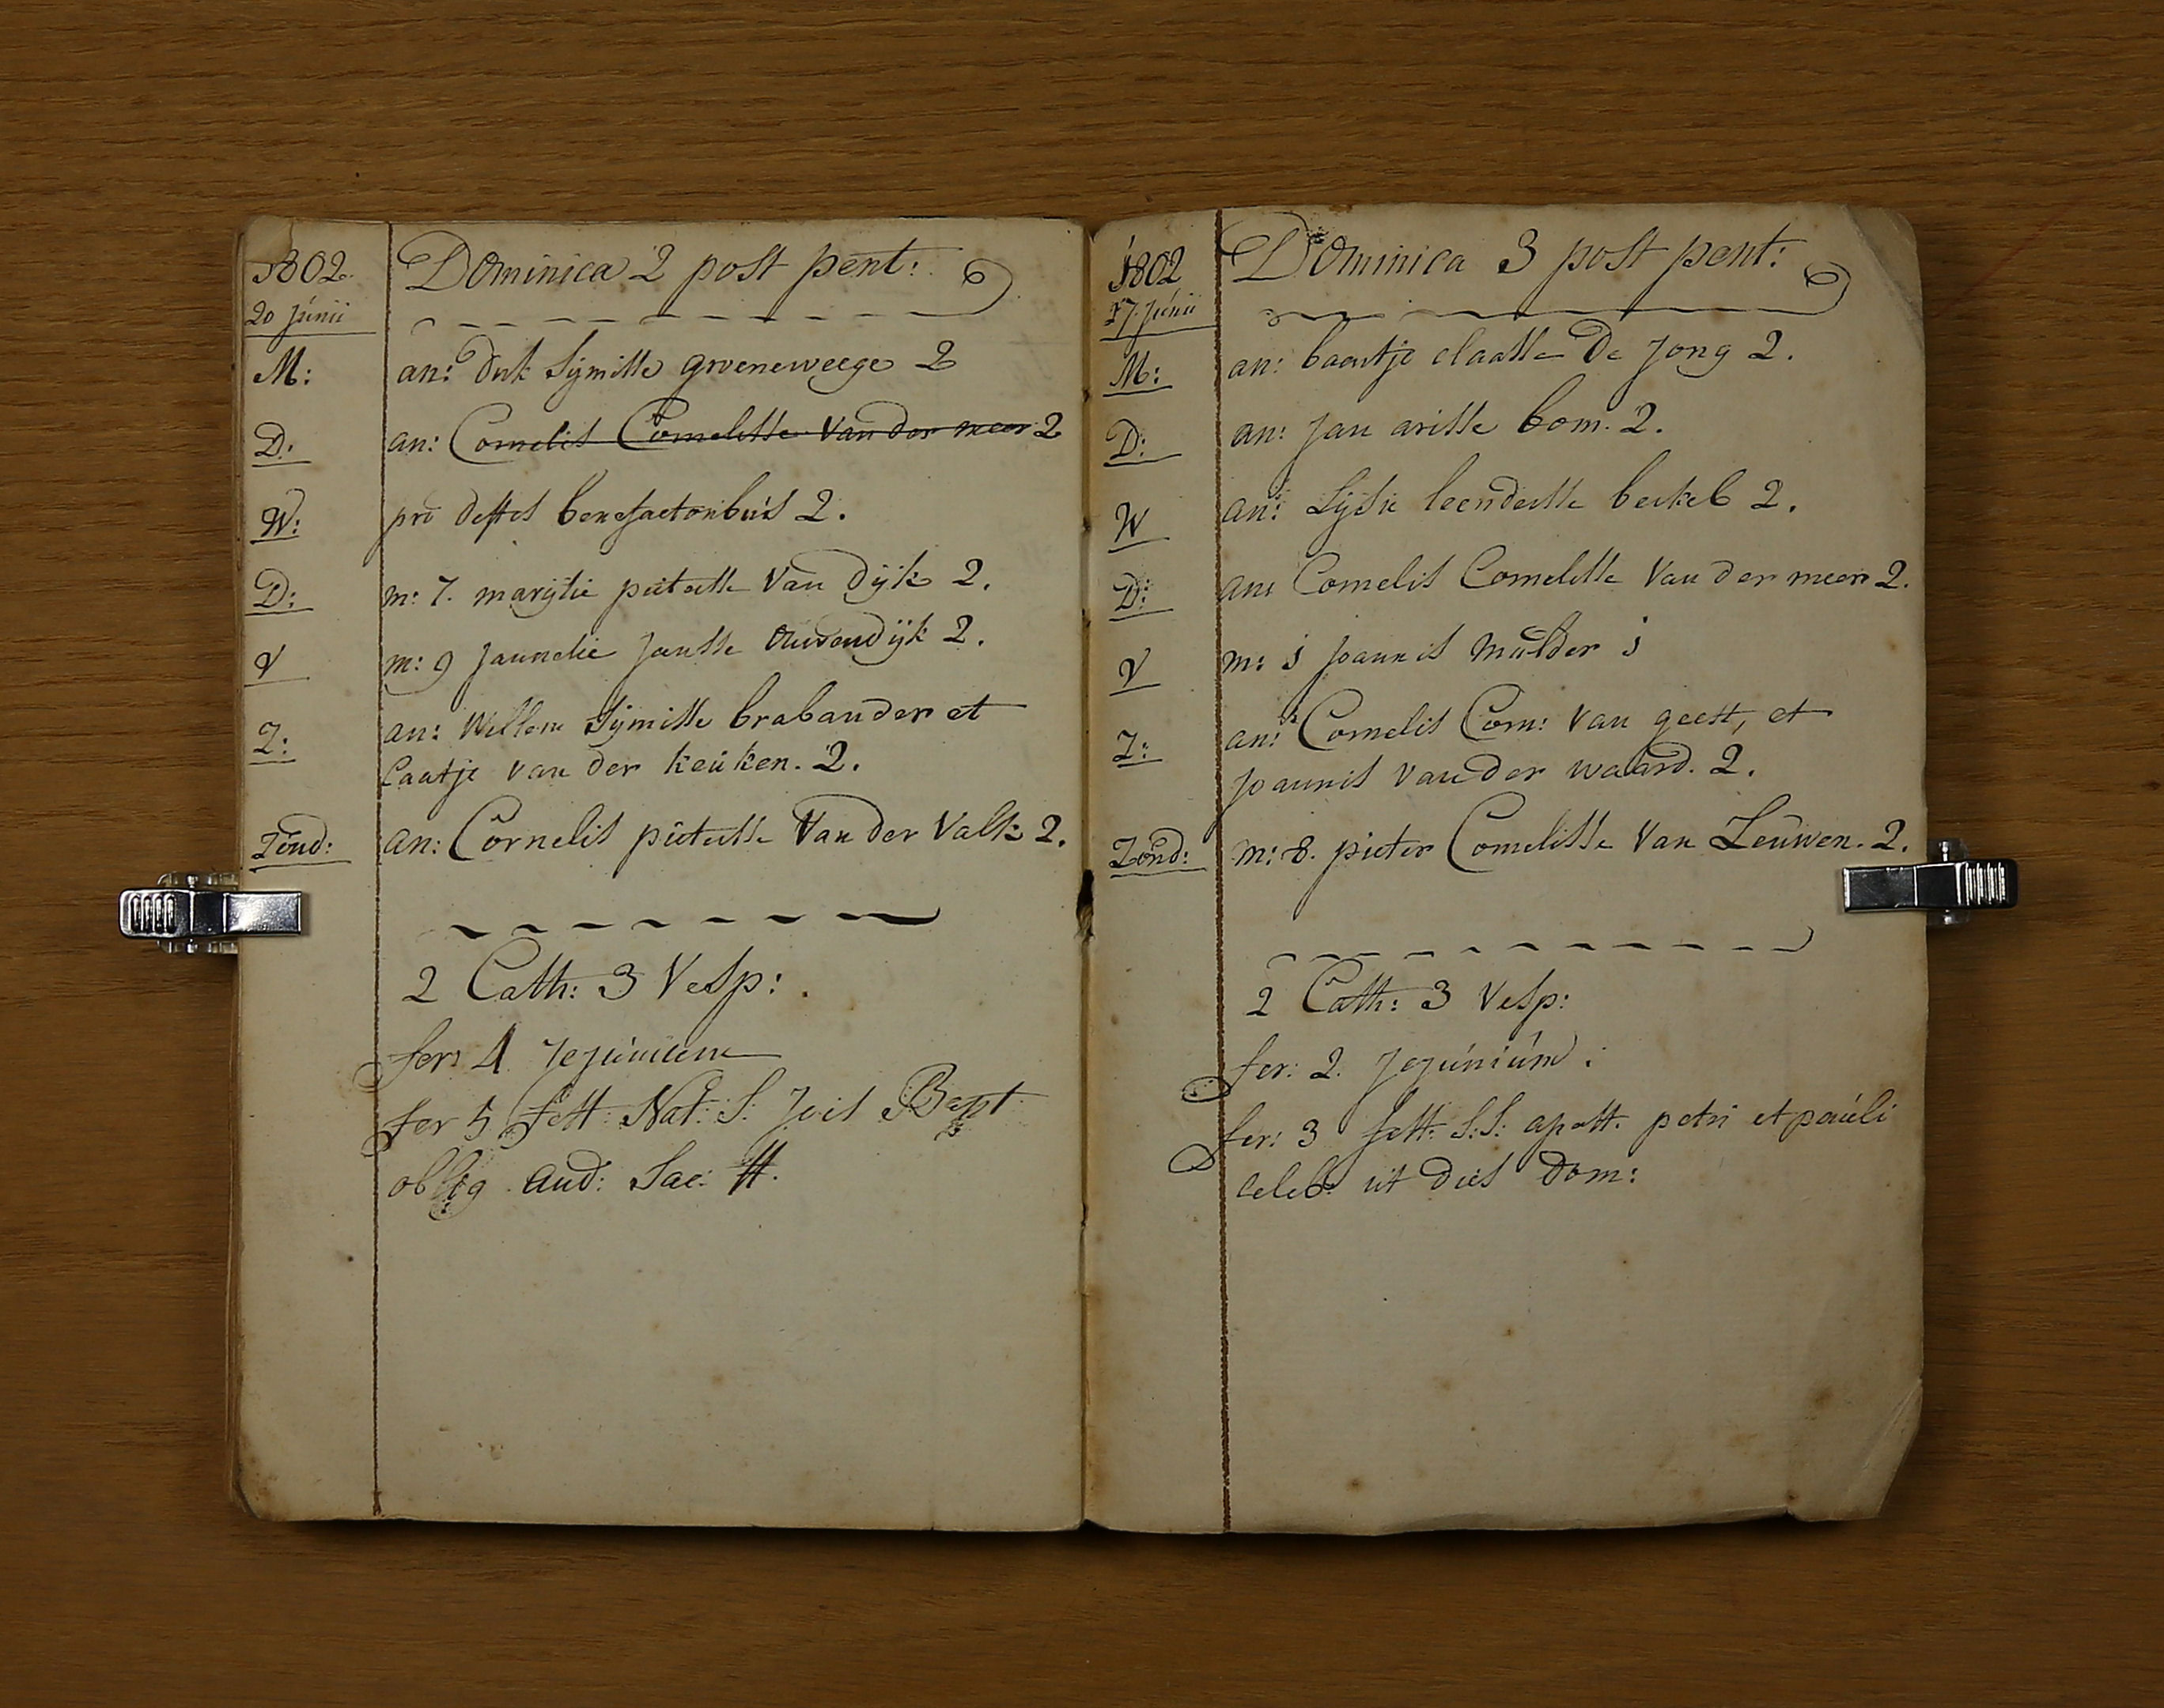 1802.
20 Junii
Dominica 2 post pent:
M: an: dirk Sijmisse groeneweege 2
D: an: Cornelis Cornelisse van der meer 2
W: pro deftis benefactoribus 2.
D: m: 7. marijtie pieterse van dijk 2.
V m: 9 Jannetie Jansse ouwendijk 2.
Z: an: Willem Sijmisse brabander et
Caatje van der keuken. 2.
Zond: an: Cornelis pieterse van der Valk 2.
2 Cath: 3 Vesp:
fer: 4 Jejunium
fer 5 fest: Nat: S: Jois Bapt
oblig. aud: Sac:
1802
27. Junii
Dominica 3 post pent:
M: an: baertje claasse De Jong 2.
D: an: Jan arisse bom. 2.
W an: Lijsie leendertse berkel 2.
D: an: Cornelis Cornelisse van der meer 2.
V m: 1 Joannis mulder 1
Z: an: Cornelis Corn: van geest, et
Joannis van der waard. 2.
Zond: m: 8. pieter Cornelisse van Leuwen. 2.
2 Cath: 3 Vesp:
fer: 2. Jejunium:
fer: 3 fest: S:S: apost. petri et pauli
celeb: ut dies Dom: